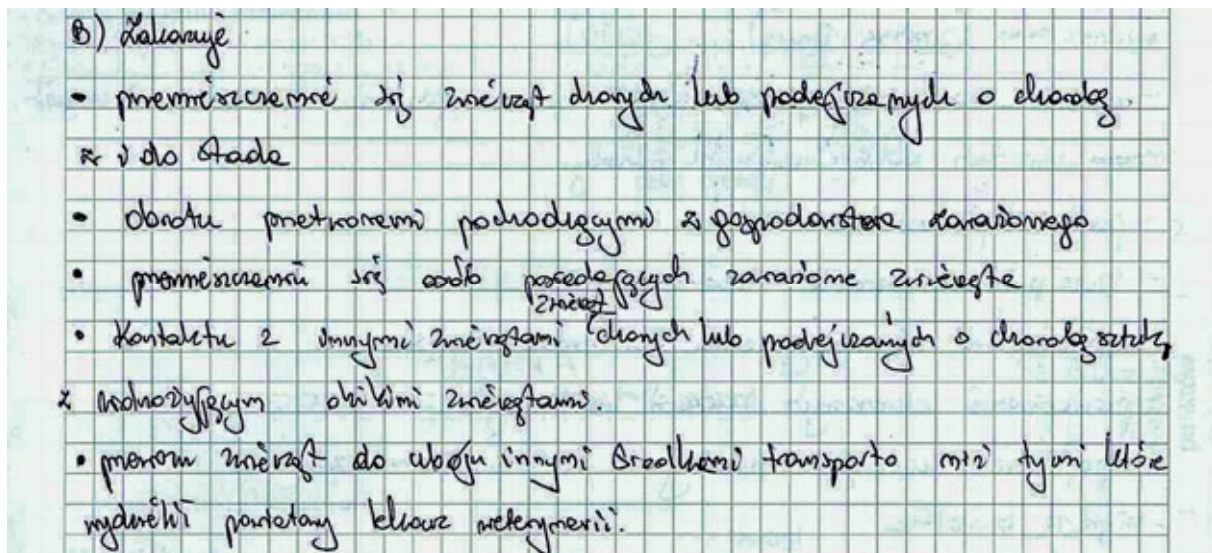 B) Zakazuje
• przemieszczenie się zwierząt chorych lub podejrzanych o chorobę
z i do stada
• obrotu przetworami pochodzącymi z gospodarstwa zarażonego
• przemieszczenia się osób posiadających zarażone zwierzęta
zwierząt
• Kontaktu z innymi zwierzętami chorych lub podejrzanych o chorobę sztuk,
z wolnożyjącym dzikimi zwierzętami.
• przewozu zwierząt do uboju innymi środkami transportu niż tymi które
wydzielił powiatowy lekarz weterynarii.